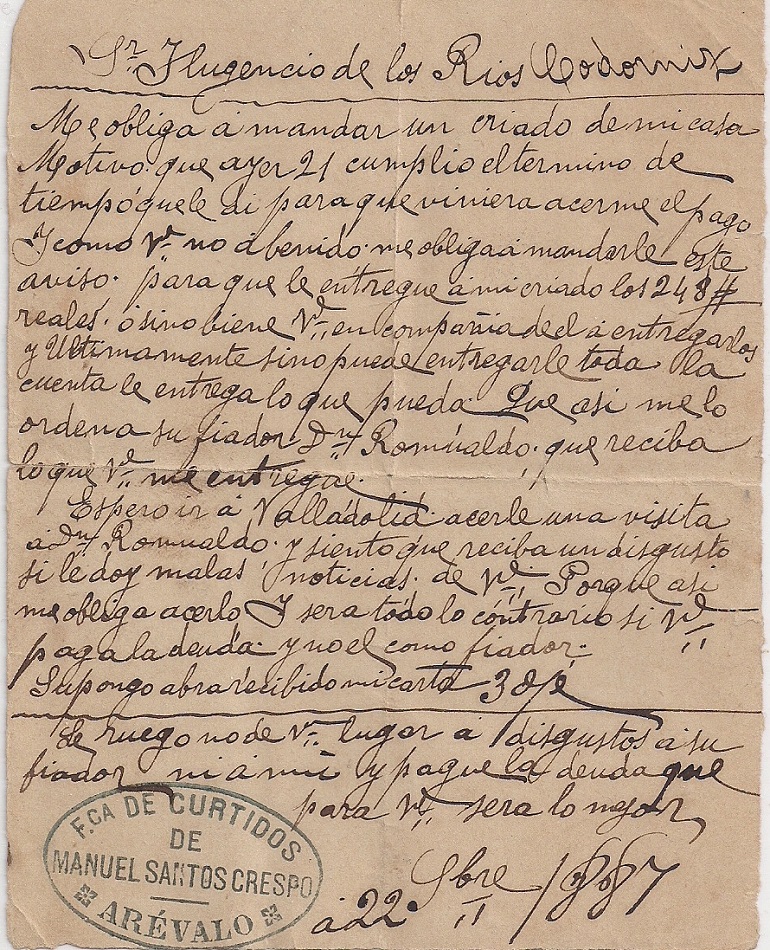 Sr Flugencio de los Rios Codorniz
Me obliga á mandar un criado de mi casa
Motivo que ayer 21 cumplio el termino de
tiempo que le di para que viniera acerme el pago
Y como Vd no a benido me obliga á mandarle este
aviso. para que le entregue á mi criado los 248#
reales. ó sino biene Vd en compañia de el á entregarlos
y Ultimamente sino puede entregarle toda la
cuenta le entrega lo que pueda. Que asi me lo
ordena su fiador Dn Romualdo. que reciba
lo que Vd me entregae.
Espero ir á Valladolid acerle una visita
á Dn Romualdo y siento que reciba un disgusto
si le doy malas noticias de Vd. Porque asi
me obliga acerlo Y sera todo lo contrario si Vd
paga la deuda y no el como fiador.
Supongo abra recibido mi carta
Le ruego no de Vd lugar á disgustos á su
fiador ni á mi y pague la deuda que
para Vd sera lo mejor
á 22 Sbre 1887
F.CA DE CURTIDOS
DE
MANUEL SANTOS CRESPO
ARÉVALO